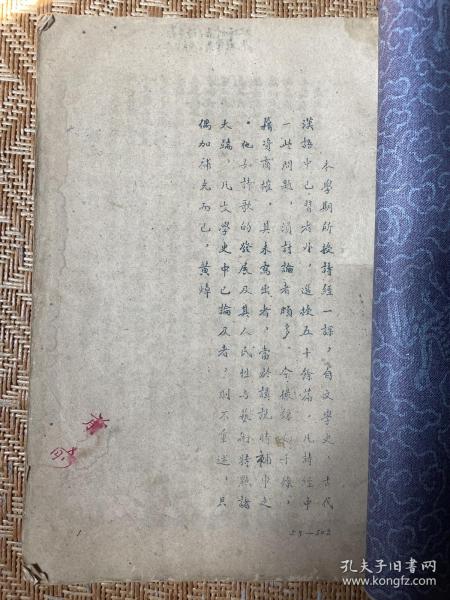 本學期所授詩經一課，自文學史、古代
漢語中已習者外，選授五十餘篇。凡詩經中
一些問題，須討論者頗多。今撮錄若干條，
藉資商榷，其未寫出者，當於講說時補申之
。他如詩歌的發展及其人民性与藝術特點諸
大端，凡文學史中已論及者，則不重述，只
偶加補充而已，黄焯
1
53—502
孔夫子旧书网
www.kongfz.com